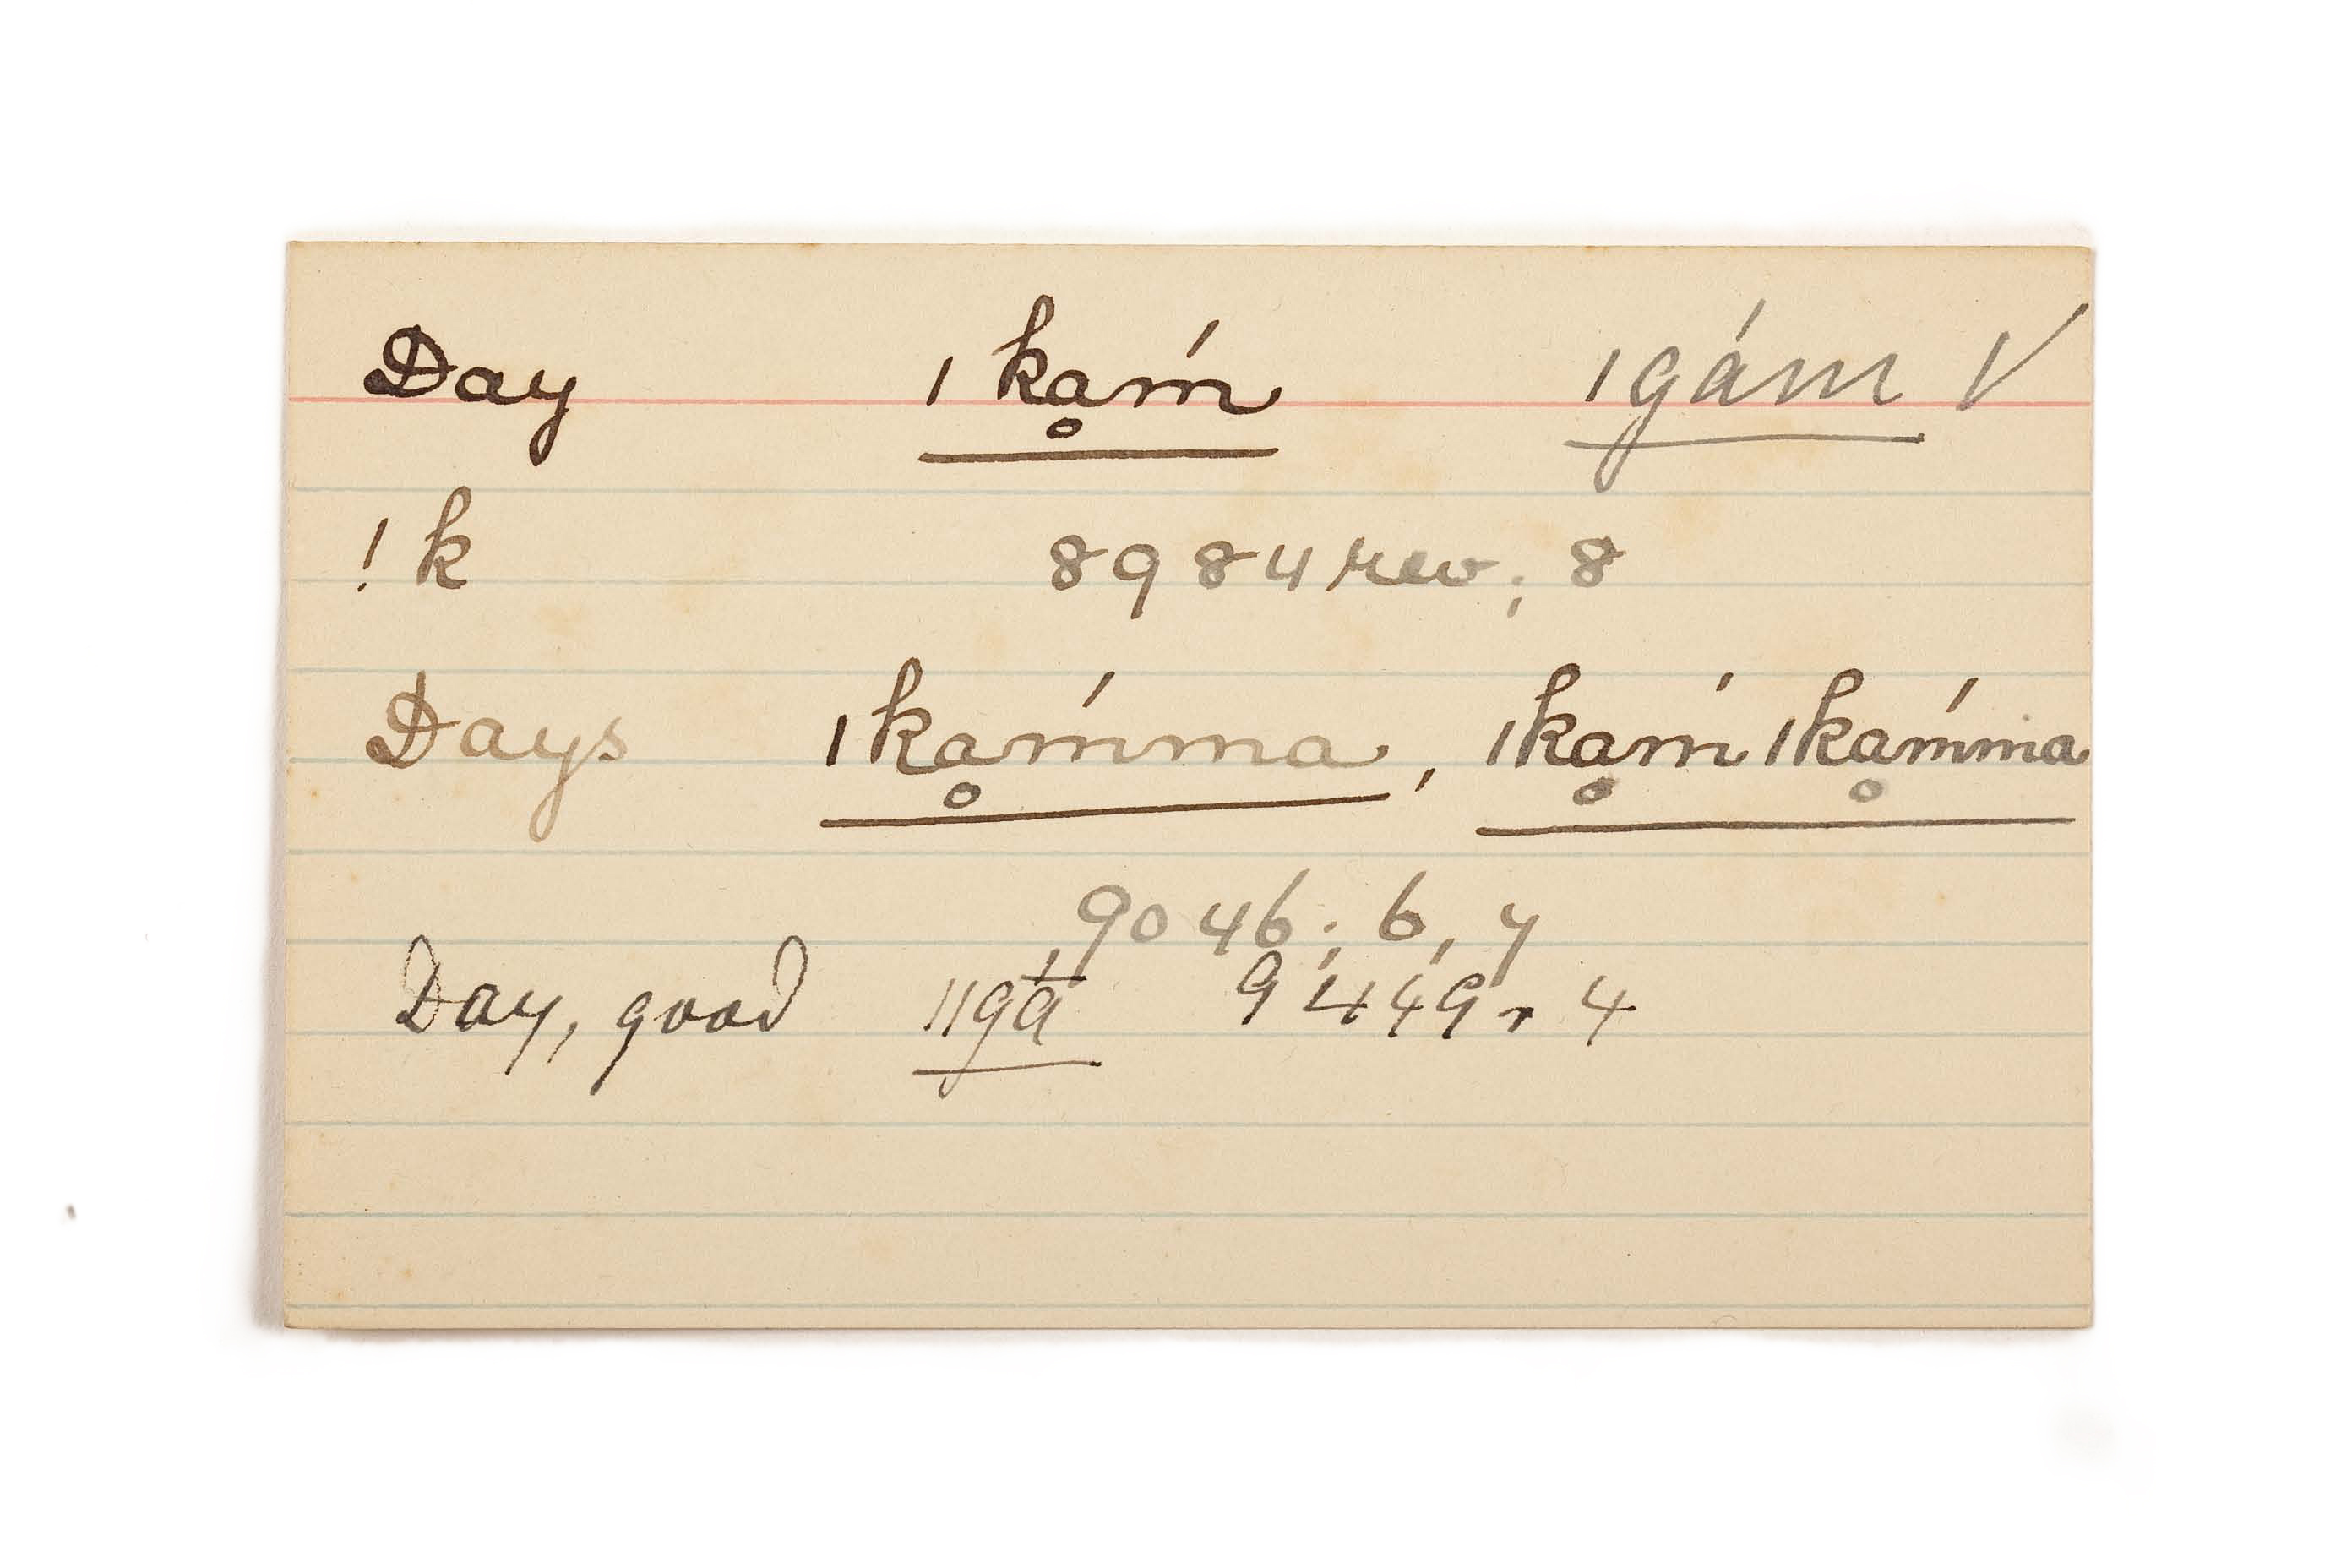 Day ǀkḁḿ ǀgám √
!k 8984 rev; 8
Days ǀkḁḿma, ǀkḁḿǀkḁḿma
9046; 6, 7
Day, good ǁgā́ 9449 r 4